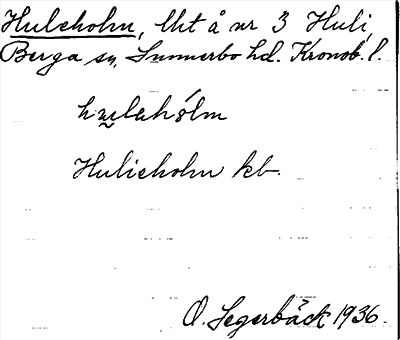 Huleholm, lht å nr 3 Huli,
Berga sn, Sunnerbo hd. Kronob. l.
hu̬lehólm
Hulieholm kb.
O. Segerbäck 1936.